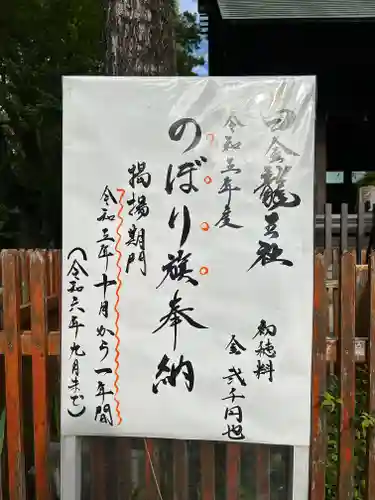 田金龍王社
初穂料
金弐千円也
令和五年度
のぼり旗奉納
掲揚期間
令和五年十月から一年間
(令和六年九月末まで)